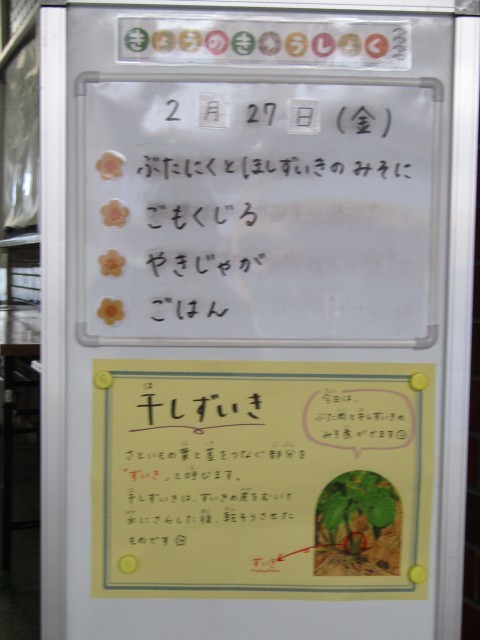 きょうのきゅうしょく
2月27日(金)
ぶたにくとほしずいきのみそに
ごもくじる
やきじゃが
ごはん
干しずいき
今日は、
ぶた肉と干しずいきの
みそ煮がでます
さといもの葉と茎をつなぐ部分を
「ずいき」と呼びます。
干しずいきは、ずいきの皮をむいて
水にさらした後、乾そうさせた
ものです
ずいき